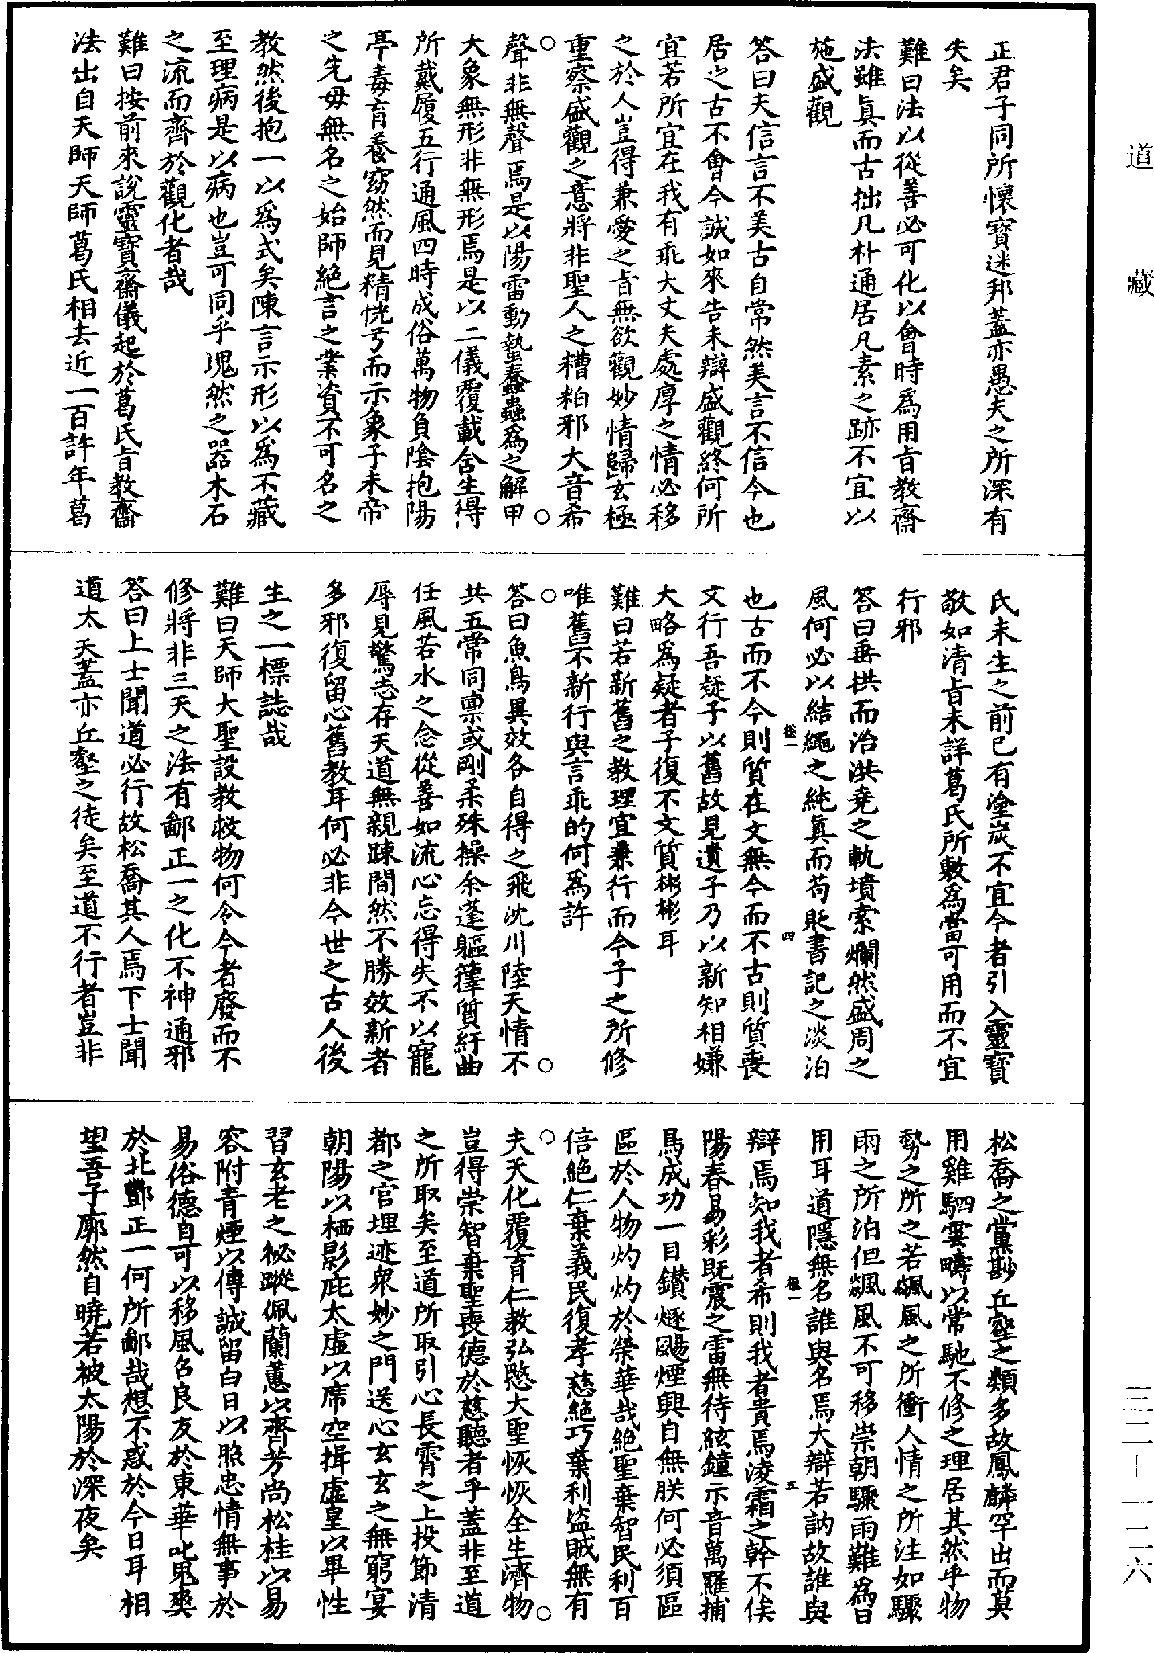 道藏
三二—一二六
正君子同所懷寶迷邦蓋亦愚夫之所深有
失矣
難曰法以從善必可化以會時為用旨教齋
法雖真而古拙凡朴通居凡素之跡不宜以
施盛觀
答曰夫信言不美古自常然美言不信今也
居之古不會今誠如來告未辯盛觀終何所
宜若所宜在我有乖大丈夫處厚之情必移
之於人豈得兼愛之旨無欲觀妙情歸玄極
重察盛觀之意將非聖人之糟粕邪大音希
聲非無聲焉是以陽雷動蟄蠢蟲為之解甲
大象無形非無形焉是以二儀覆載含生得
所戴履五行通風四時成俗萬物負陰抱陽
亭毒育養窈然而見精恍兮而示象子未帝
之先毋無名之始師絕言之業資不可名之
教然後抱一以為式矣陳言示形以為不藏
至理病是以病也豈可同乎塊然之器木石
之流而齊於觀化者哉
難曰按前來說靈寶齋儀起於葛氏旨教齋
法出自天師天師葛氏相去近一百許年葛
氏未生之前已有塗炭不宜今者引入靈寶
敬如清旨未詳葛氏所敷為當可用而不宜
行邪
答曰垂拱而治洪堯之軌墳索爛然盛周之
風何必以結繩之純真而苟貶書記之淡泊
也古而不今則質在文無今而不古則質喪
文行吾疑子以舊故見遺子乃以新知相嫌
大略為疑者子復不文質彬彬耳
難曰若新舊之教理宜兼行而今子之所修
唯舊不新行與言乖的何為許
答曰魚鳥異效各自得之飛沈川陸天情不
共五常同稟或剛柔殊操余蓬軀蓽質紆曲
任風若水之念從善如流心忘得失不以寵
辱見驚志存天道無親踈間然不勝效新者
多邪復留心舊教耳何必非今世之古人後
生之一標誌哉
難曰天師大聖設教救物何令今者廢而不
修將非三天之法有鄙正一之化不神通邪
答曰上士聞道必行故松喬其人焉下士聞
道太天蓋亦丘壑之徒矣至道不行者豈非
松喬之黨尠丘壑之類多故鳳麟罕出而莫
用雞駟雲疇以常馳不修之理居其然乎物
勢之所之若飈風之所衝人情之所注如驟
雨之所泊但飈風不可移崇朝驟雨難為日
用耳道隱無名誰與名焉大辯若訥故誰與
辯焉知我者希則我者貴焉淩霜之幹不俟
陽春易彩既震之雷無待絃鐘示音萬羅捕
鳥成功一目鑽燧颺煙興自無朕何必須區
區於人物灼灼於榮華哉絕聖棄智民利百
倍絕仁棄義民復孝慈絕巧棄利盜賊無有
夫天化覆育仁教弘愍大聖恢恢全生濟物
豈得崇智棄聖喪德於慈聽者乎蓋非至道
之所取矣至道所取引心長霄之上投節清
都之官埋迹衆妙之門送心玄玄之無窮宴
朝陽以栖影庇太虛以席空揖虛皇以畢性
習玄老之秘蹤佩蘭蕙以齊芳尚松桂以易
容附青煙以傳誠留白日以照忠情無事於
易俗德自可以移風召良友於東華叱鬼爽
於北酆正一何所鄙哉想不惑於今日耳相
望吾子廓然自曉若被太陽於深夜矣
四
五